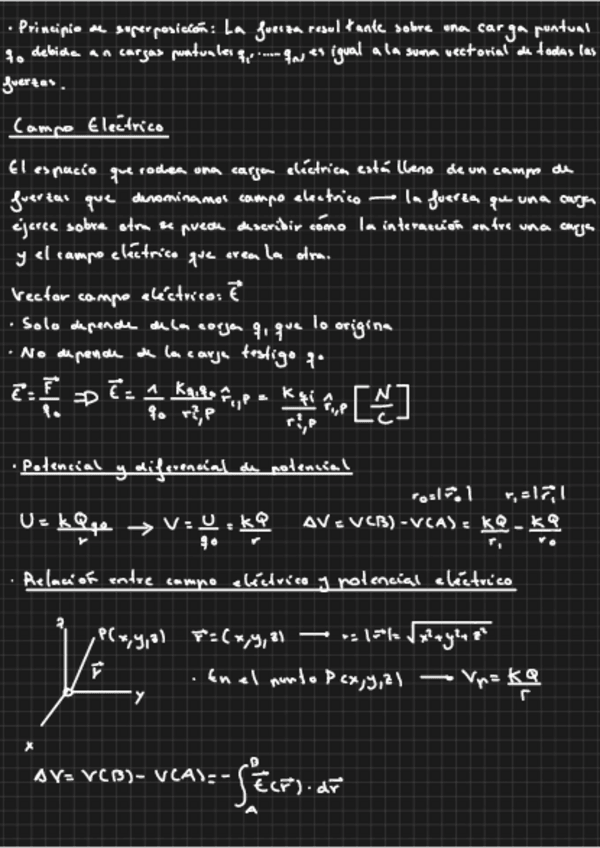 · Principio de superposición: La fuerza resultante sobre una carga puntual
q₀ debida a n cargas puntuales q₁, ..... qₙ, es igual a la suma vectorial de todas las
fuerzas.
Campo Eléctrico
El espacio que rodea una carga eléctrica está lleno de un campo de
fuerzas que denominamos campo electrico → la fuerza que una carga
ejerce sobre otra se puede describir cómo la interacción entre una carga
y el campo eléctrico que crea la otra.
Vector campo eléctrico: E⃗
· Solo depende de la carga q, que lo origina
· No depende de la carga testigo q₀
E⃗ = F⃗/q₀ ⇒ E⃗ = 1/q₀ · K qᵢ q₀/r²ᵢ,P r̂ᵢ,P = K qᵢ/r²ᵢ,P r̂ᵢ,P [N/C]
· Potencial y diferencial de potencial
r₀=|r⃗₀| r₁=|r⃗₁|
U = kQq₀/r → V = U/q₀ = kQ/r ΔV = V(B) - V(A) = kQ/r₁ - kQ/r₀
· Relación entre campo eléctrico y potencial eléctrico
z P(x,y,z) r⃗=(x,y,z) → r=|r⃗|=√(x²+y²+z²)
r⃗ y · En el punto P(x,y,z) → Vₚ = kQ/r
x
ΔV = V(B) - V(A) = -∫_A^B E⃗(r⃗)·dr⃗